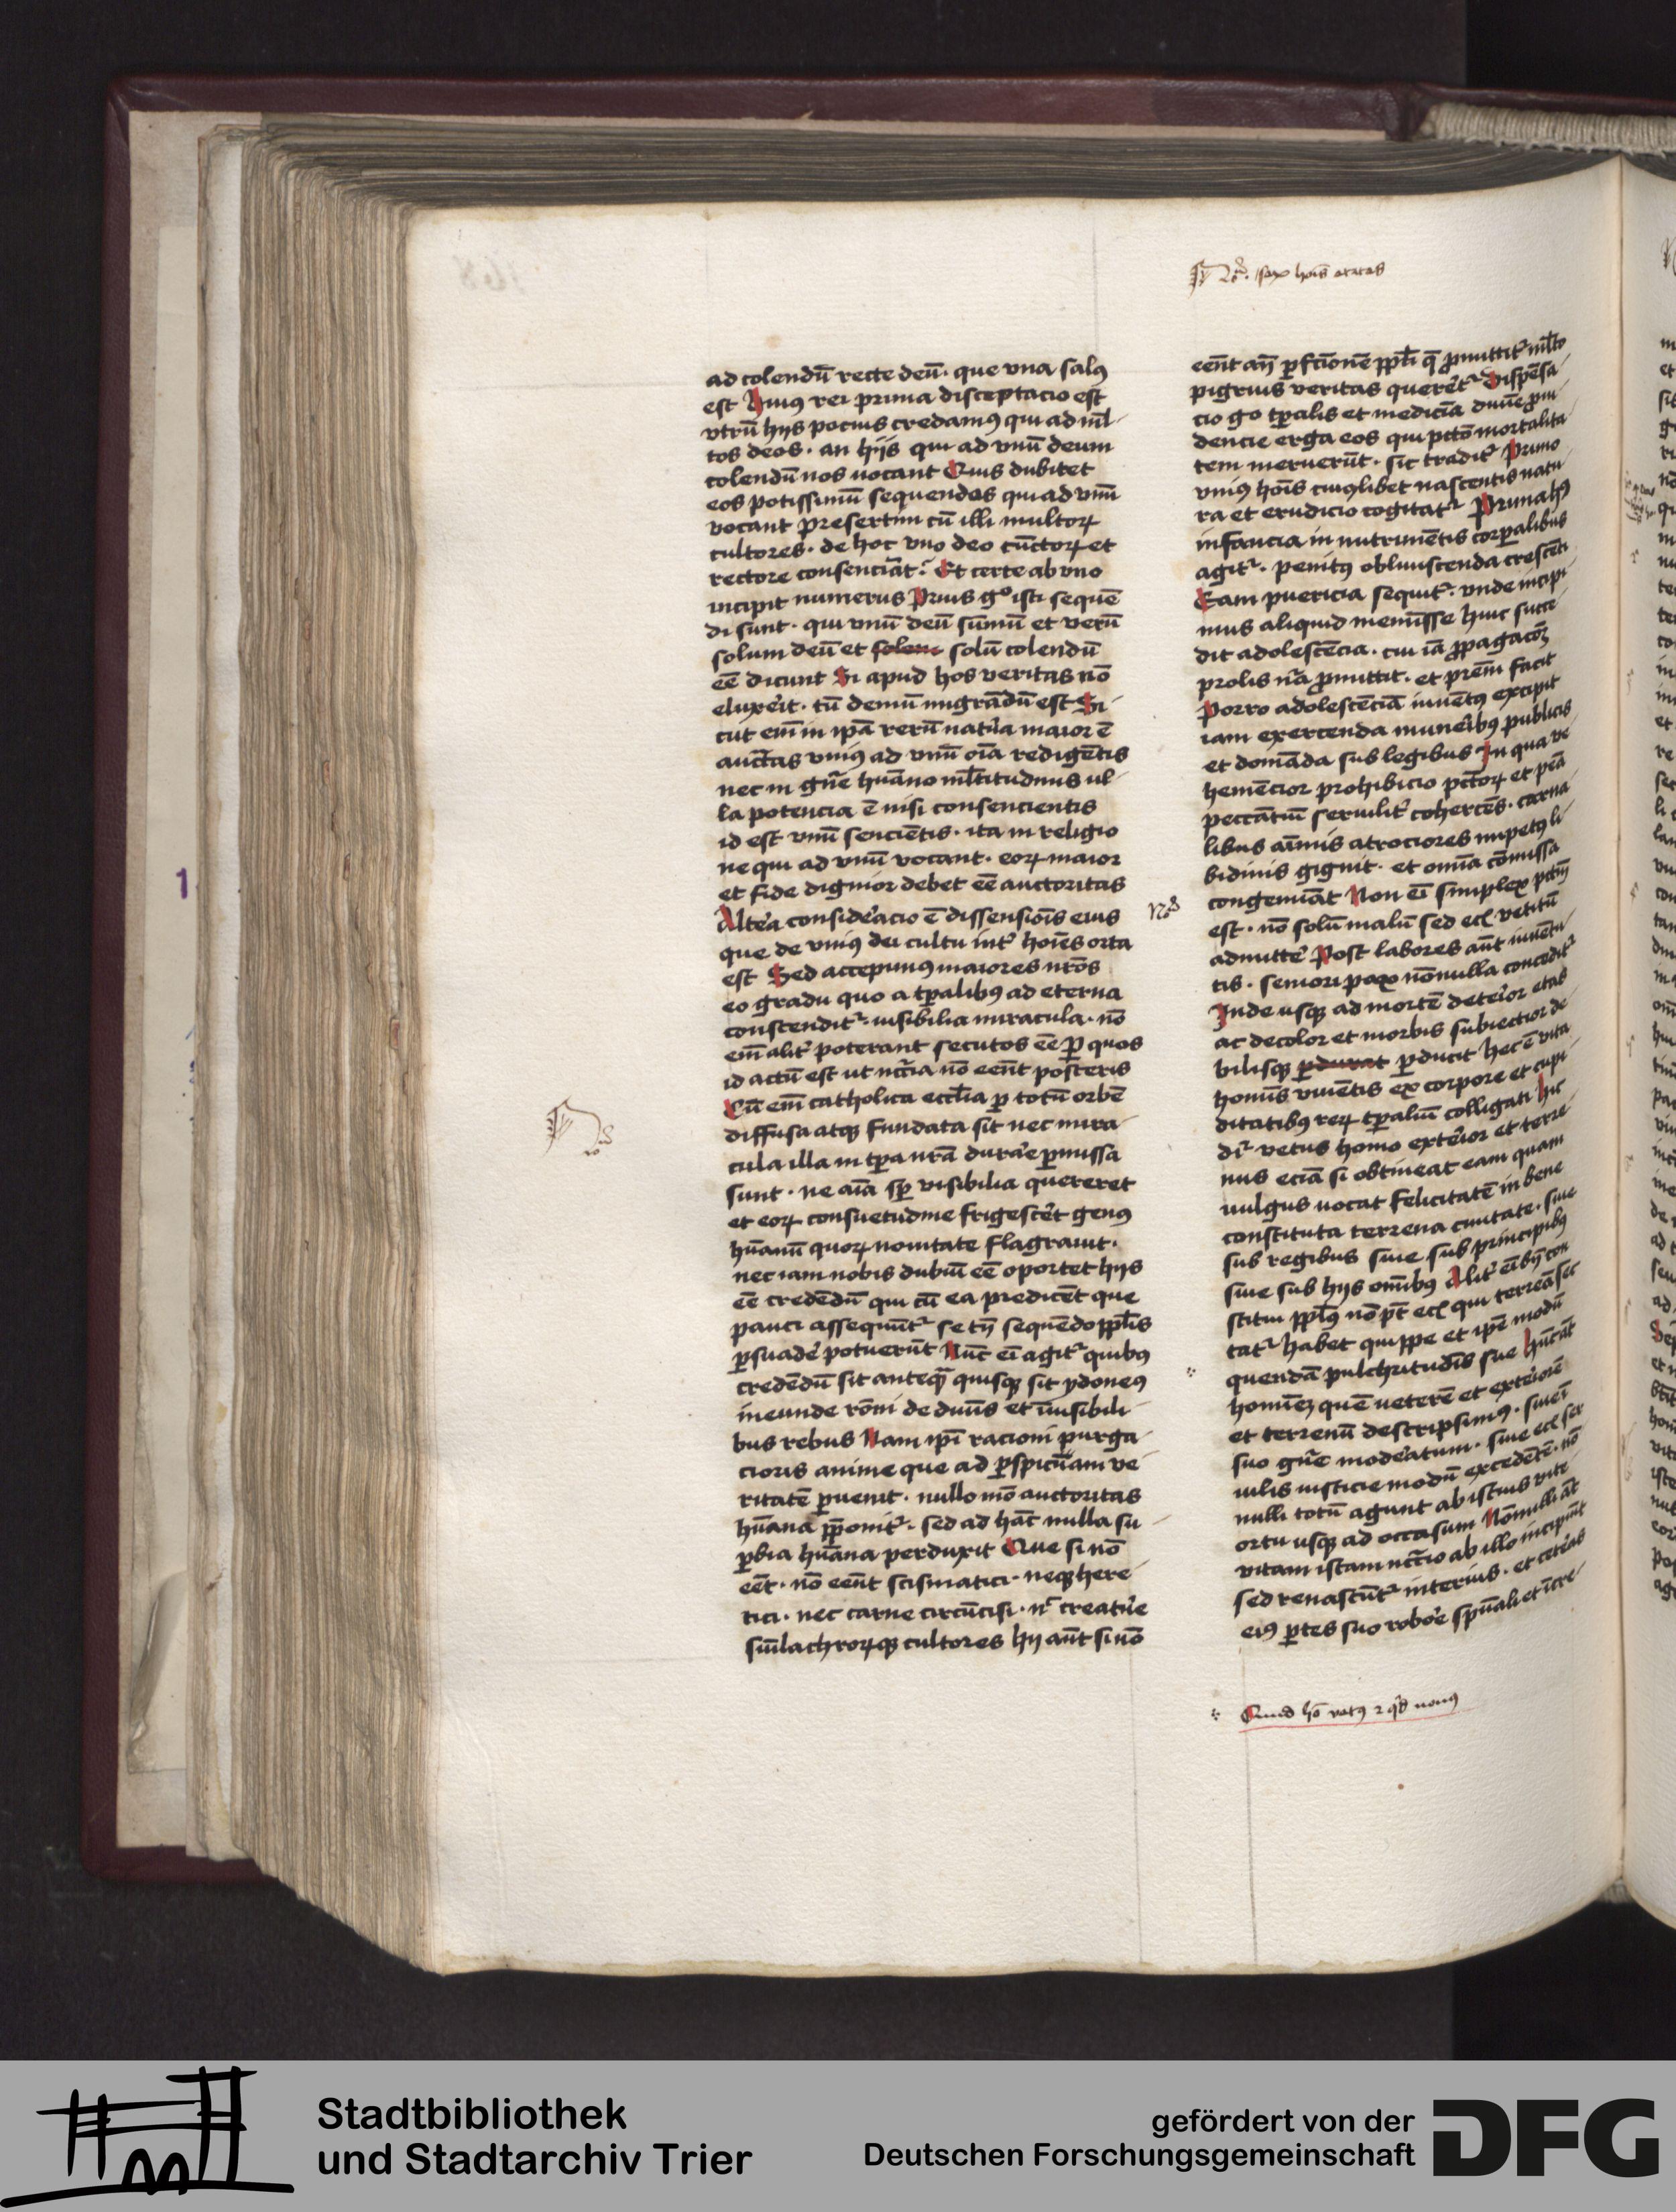 No. sex hoīs etates
ad colendū recte deū. que vna salꝰ
est Huiꝰ rei prima disceptacio est
vtrū hijs pocius credamꝰ qui ad ml̄
tos deos. an hijs qui ad vnū deum
colendū nos uocant Quis dubitet
eos potissimū sequendos qui ad vnū
vocant presertim cū illi multoꝝ
cultores. de hoc vno deo cūctoꝝ et
rectore consenciāt. Et certe ab vno
incipit numerus Prius gͦ isti sequē
di sunt. qui vnū deū sūmū et verū
solum deū et solem solū colendū
eē dicunt Si apud hos veritas nō
eluxerit. tū demū migrādū est Si
cut em̄ in ipā rerū nat'a maior ē
auctas vniꝰ ad vnū oīa redigētis
nec in gn̄e hūano ml̄titudinis ul
la potencia ē nisi consencientis
id est vnū senciētis. ita in religio
ne qui ad vnū vocant. eoꝝ maior
et fide dignior debet eē auctoritas
Altera consideracio ē dissensiois eius
que de vniꝰ dei cultu int' hoīes orta
est Sed accepimꝰ maiores nr̄os
eo gradu quo a tp̄alibꝰ ad eterna
conscendit᷑. uisibilia miracula. nō
em̄ alit' poterant secutos eē ꝑ quos
id actū est ut nc̄c̄ia nō eēnt posteris
Cū em̄ catholica eccl̄ia ꝑ totū orbē
diffusa atqꝫ fundata sit nec mira
cula illa in tp̄a nr̄a durare ꝑmissa
sunt. ne aīa sp̄ visibilia quereret
et eoꝝ consuetudine frigescēt genꝰ
hūanū quoꝝ nouitate flagrauit.
nec iam nobis dubiū eē oportet hijs
eē credēdū qui cū ea predicēt que
pauci assequūt᷑ se tn̄ sequēdo ppl̄is
ꝑsuade' potuerūt Nūc ei agit᷑ quibꝰ
credēdū sit anteq̄ quisqꝫ sit ydoneꝰ
ineunde rōni de diuīs et īuisibili
bus rebus Nam ipī racioni purga
cioris anime que ad ꝑspicuam ve
ritatē ꝑuenit. nullo mō auctoritas
hūana pp̄onit᷑. sed ad hāc nulla su
ꝑbia hūana perduxit Que si nō
eēt. nō eēnt scismatici. neqꝫ here
tici. nec carne circūcisi. nͨ creat'e
sīlachroꝝqꝫ cultores hij aūt si nō
eēnt an̄ ꝑfcionē ppl̄i q̄ ꝓmittit᷑ ml̄to
pigrius veritas querēt᷑ Dispēsa
cio gͦ tp̄alis et medicīa diuīe ꝓui
dencie erga eos qui pctō mortalita
tem meruerūt. sic tradit᷑ Primo
vniꝰ hoīs cuiꝰlibet nascentis natu
ra et erudicio cogitat᷑ Prima hꝰ
infancia in nutrimētis corꝑalibus
agit᷑. penitꝰ obliuiscenda crescēti
Eam puericia sequit᷑. vnde incipi
mus aliquid meminisse huic succe
dit adolescēcia. cui iā ꝓpagacōꝫ
prolis nā ꝓmittit. et prēm facit
Porro adolescēciā iuuētꝰ excipit
iam exercenda muneribꝰ publicis
et domāda sub legibus In qua ve
hemēcior prohibicio pctōꝝ et pēa
peccātiū seruilit' cohercēs. carna
libus aīmis atrociores impetꝰ li
bidinis gignit. et omīa cōmissa
No
congemināt Non ei simplex pctm̄
est. nō solū malū sed ecͣ vetitū
admitte' Post labores aūt iuuētu
tis. seniori pax nōnulla concedit᷑
Inde usqꝫ ad mortē deterior etas
ac decolor et morbis subiectior de
bilisqꝫ ꝑdurat ꝑducit Hec ē vita
hominis viuētis ex corpore et cupi
ditatibꝰ reꝝ tp̄aliū colligati Hic
dr̄ vetus homo exterior et terre
nus eciā si obtineat eam quam
uulgus uocat felicitatē in bene
constituta terrena ciuitate. siue
sub regibus siue sub principibꝰ
siue sub hijs omībꝰ Alit' ei bn̄ con
stitui ppl̄s nō pt̄ ecͣ qui terrena sec
tat᷑ habet quippe et ipē modū
quendā pulchritudīs sue Hūc āt
homīeꝫ quē ueterē et exteriorē
et terrenū descripsimꝰ. siue ī
suo gn̄e moderatum. siue ecͣ ser
uilis iusticie modū excedētē. nō
nulli totū agunt ab istius vite
ortu usqꝫ ad occasum Nōnulli āt
vitam istam nc̄c̄io ab illo incipiūt
sed renascūt᷑ interius. et ceteras
eiꝰ ꝑtes suo robore spūali et īcre
Quid hō vetꝰ 2 qͥd nouꝰ
1
Stadtbibliothek
und Stadtarchiv Trier
gefördert von der
Deutschen Forschungsgemeinschaft
DFG